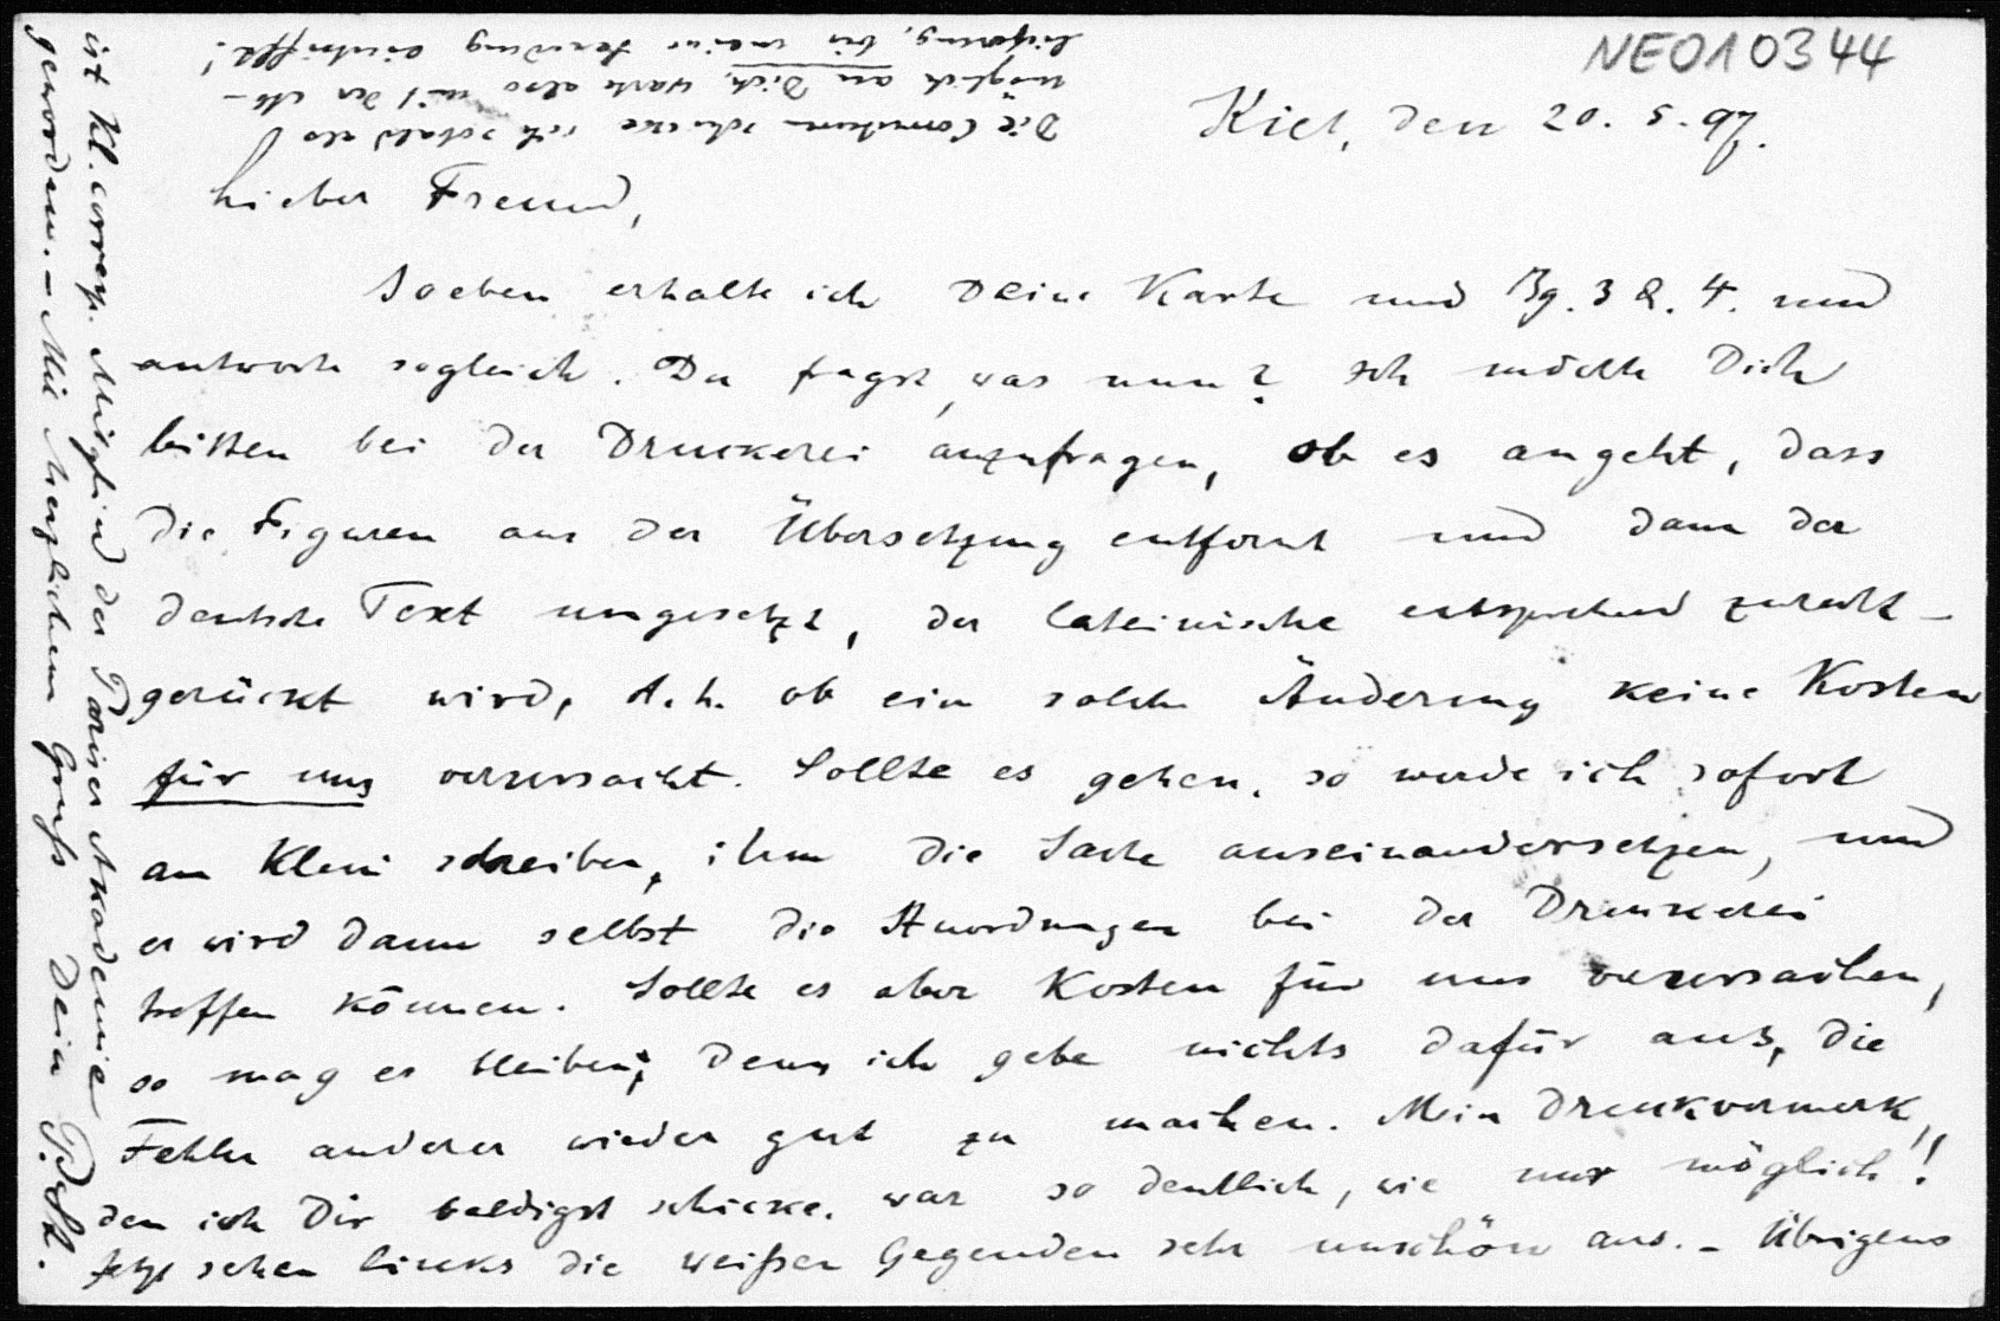 NEO10344
Kiel, den 20. 5. 97.
Lieber Freund,
Soeben erhalte ich Deine Karte und Bg. 3 & 4. und
antworte sogleich. Du fragst, was nun? Ich möchte Dich
bitten bei der Druckerei anzufragen, ob es angeht, dass
die Figuren aus der Übersetzung entfernt und dann der
deutsche Text umgesetzt, der lateinische entsprechend zurecht-
gerückt wird, d. h. ob ein solche Änderung keine Kosten
für uns verursacht. Sollte es gehen, so werde ich sofort
an Klein schreiben, ihm die Sache auseinandersetzen, und
er wird dann selbst die Anordnungen bei der Druckerei
treffen können. Sollte es aber Kosten für uns verursachen,
so mag es bleiben; denn ich gebe nichts dafür aus, die
Fehler anderer wieder gut zu machen. Mein Druckvermerk,
den ich Dir baldigst schicke, war so deutlich, wie nur möglich!!
Jetzt sehen links die weißen Gegenden sehr unschön aus. - Übrigens
ist Kl. corresp. Mitglied der Pariser Akademie
geworden. - Mit herzlichem Gruß Dein P. St.
Die Correkturen schicke ich sobald als
möglich an Dich, warte also mit der Ab-
lieferung, bis meine Sendung eintrifft!